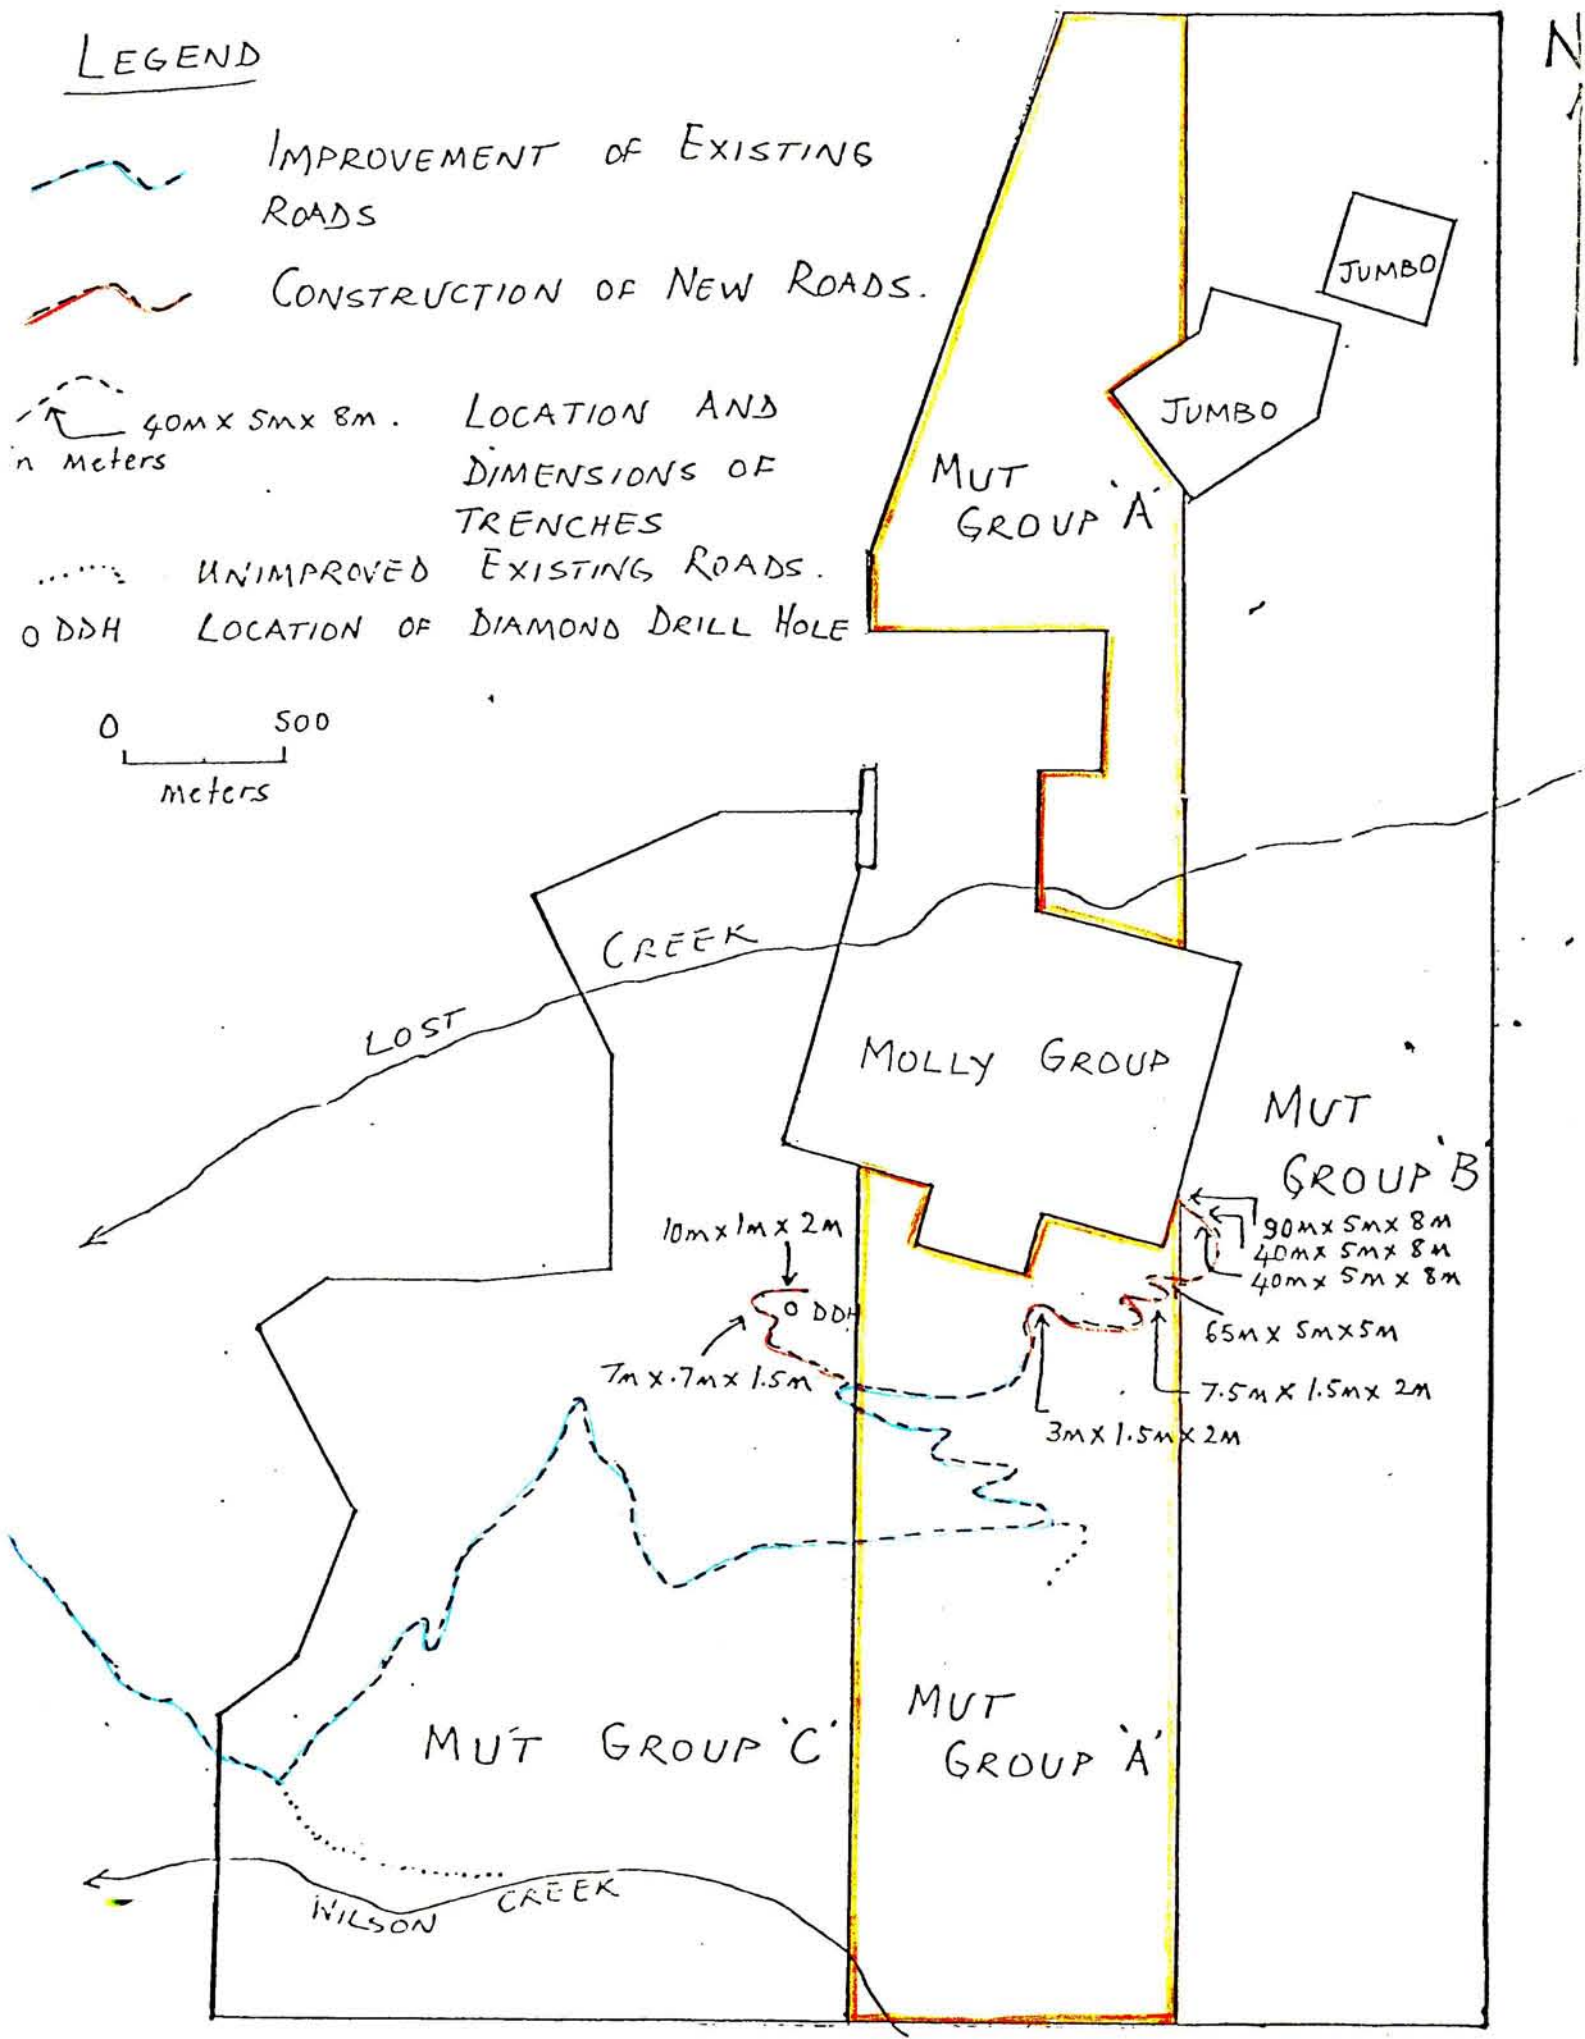 LEGEND
IMPROVEMENT OF EXISTING
ROADS
CONSTRUCTION OF NEW ROADS.
40m x 5m x 8m.
n meters
LOCATION AND
DIMENSIONS OF
TRENCHES
UNIMPROVED EXISTING ROADS.
O DDH LOCATION OF DIAMOND DRILL HOLE
0 500
meters
N
JUMBO
JUMBO
MUT
GROUP 'A'
CREEK
LOST
MOLLY GROUP
MUT
GROUP 'B'
10m x 1m x 2m
90m x 5m x 8m
40m x 5m x 8m
40m x 5m x 8m
O DDH
65m x 5m x 5m
7m x .7m x 1.5m
7.5m x 1.5m x 2m
3m x 1.5m x 2m
MUT GROUP 'C'
MUT
GROUP 'A'
WILSON CREEK